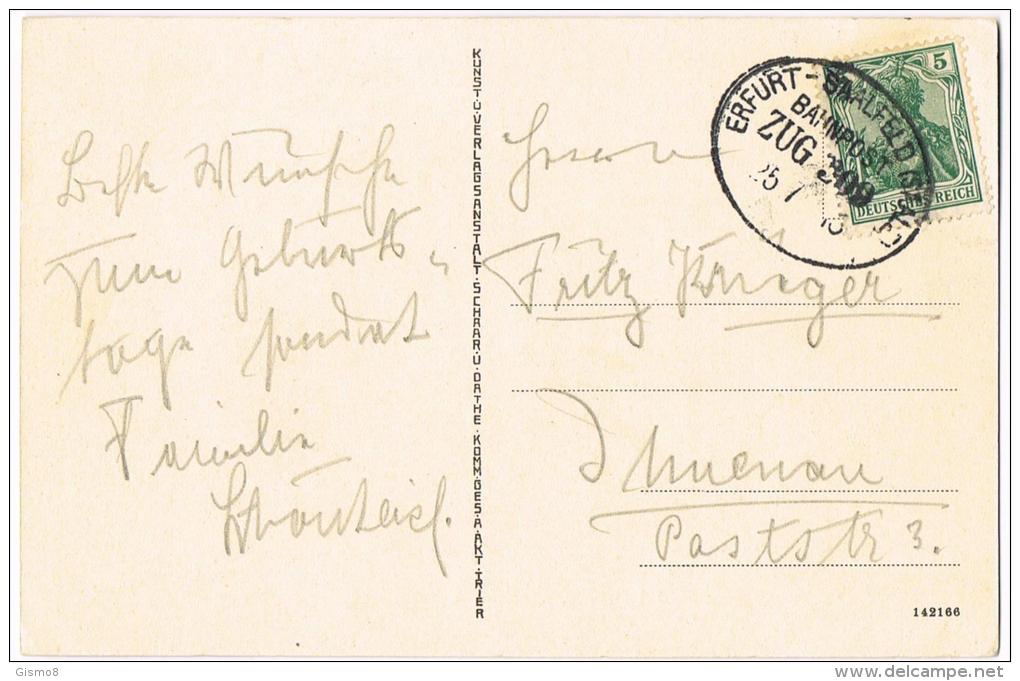 Beste Wünsche
zum Geburts-
tage sendet
Familie
KUNST-U-VERLAGSANSTALT-SCHAAR-U-DATHE KOMM-GES-A-AKT-TRIER
ERFURT - SAALFELD (SAALE)
BAHNPOST
ZUG 309
25 7 13
5
DEUTSCHES REICH
Herrn
Fritz Krieger
Ilmenau
Poststr 3.
142166
Gismo8
delcampe.net